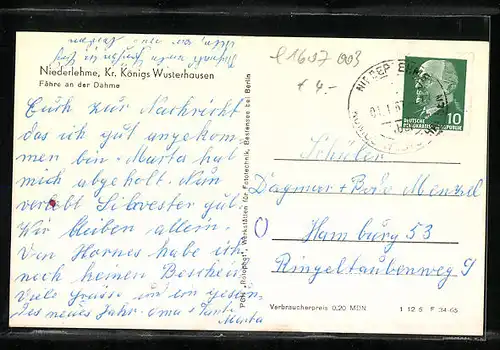 l 1607 003
4.-
Niederlehme, Kr. Königs Wusterhausen
Fähre an der Dahme
NIEDERLEHME
10
DEUTSCHE
DEMOKRATISCHE REPUBLIK
Euch zur Nachricht
das ich gut angekom
men bin. Marta hat
mich abgeholt. Nun
verlebt Silvester gut
Wir bleiben allein.
Von Hornes habe ich
noch keinen Bescheid
Viele Grüsse und ein gesun
des neues Jahr. Oma + Tante
Marta
PGH „Rotophot", Werkstätten für Fototechnik, Bestensee bei Berlin
Schüler
Dagmar + Bodo Menzel
Hamburg 53
Ringeltaubenweg 9
Verbraucherpreis 0,20 MDN
1 12 6 F 34-65